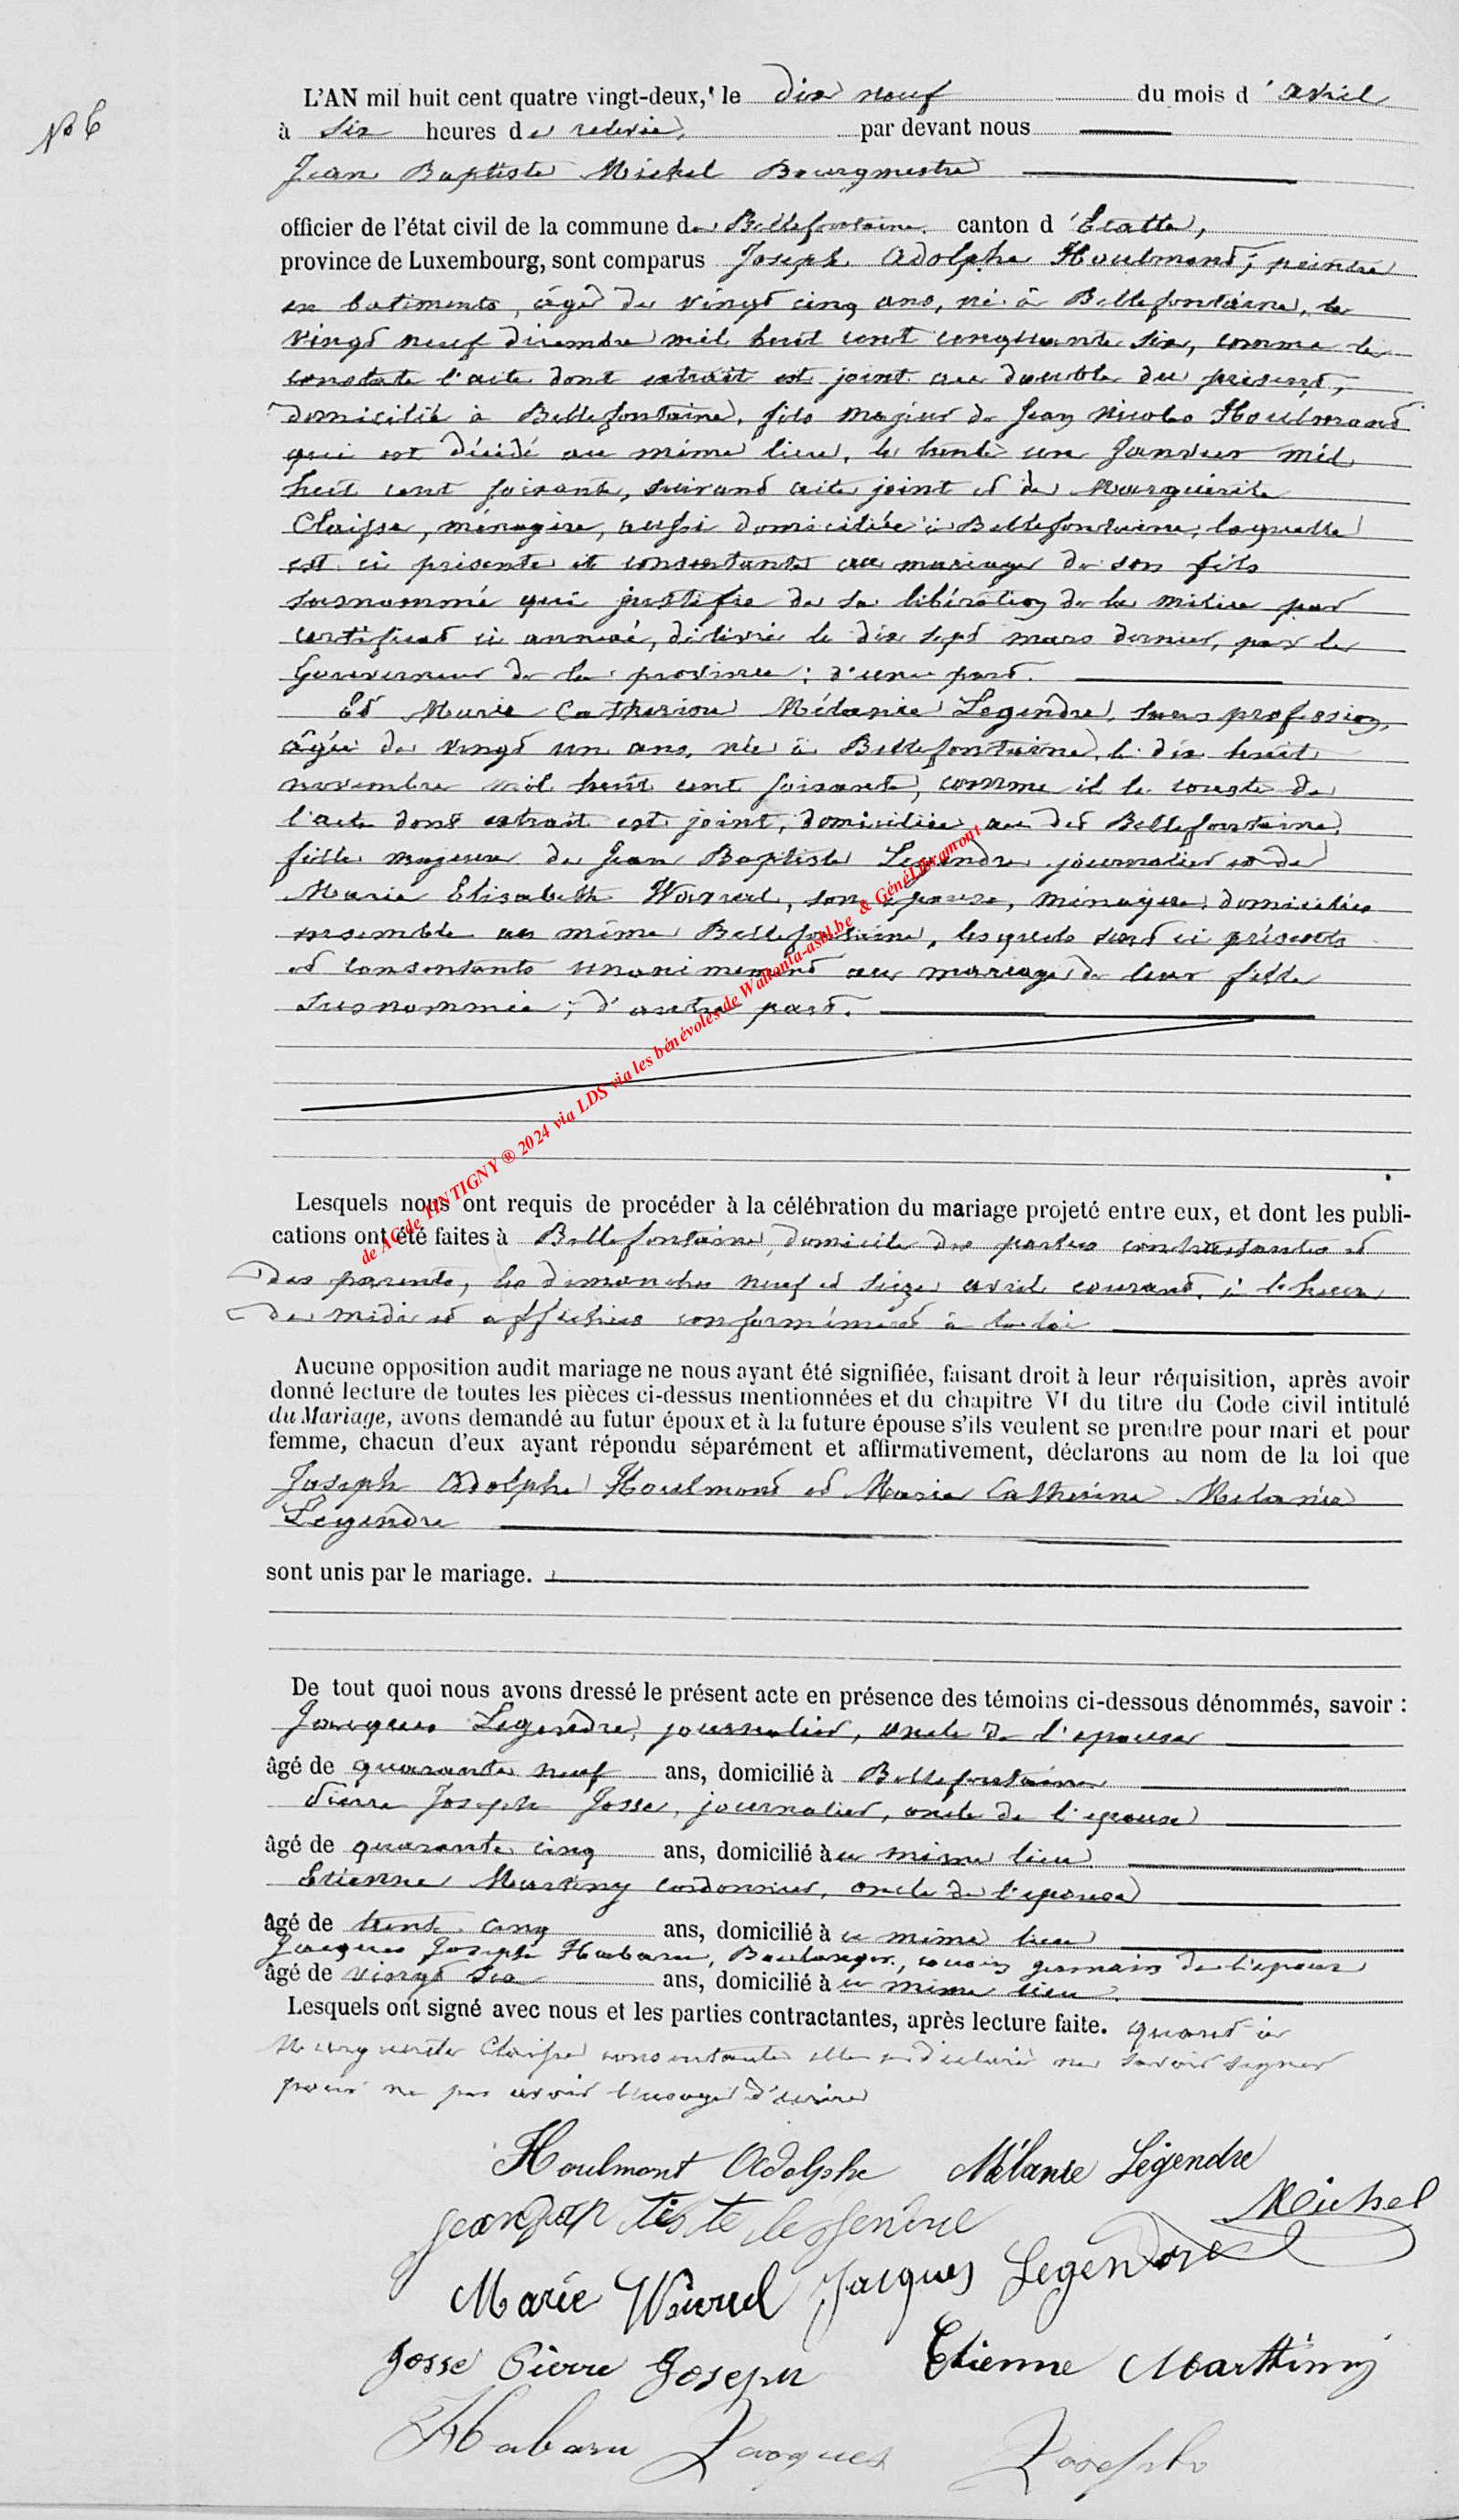 N° 6
L'AN mil huit cent quatre vingt-deux, le dix neuf du mois d'avril
à six heures de relevée, par devant nous
Jean Baptiste Michel Bourgmestre
officier de l'état civil de la commune de Bellefontaine canton d'Etalle,
province de Luxembourg, sont comparus Joseph Adolphe Houlmond, peintre
en batiments, âgé de vingt cinq ans, né à Bellefontaine, le
vingt neuf décembre mil huit cent cinquante six, comme le
constate l'acte dont extrait est joint au double du présent,
domicilié à Bellefontaine, fils majeur de Jean Nicolas Houlmond
qui est décédé au même lieu, le trente un Janvier mil
huit cent soixante, suivant acte joint et de Marguerite
Claisse, ménagère, aussi domiciliée à Bellefontaine, laquelle
est ici présente et consentante au mariage de son fils
susnommé qui justifie de sa libération de la milice par
certificat ci annexé, délivré le dix sept mars dernier, par le
Gouverneur de la province; d'une part.
Et Marie Catherine Mélanie Legendre, sans profession,
âgée de vingt un ans, née à Bellefontaine, le dix huit
novembre mil huit cent soixante, comme il le conste de
l'acte dont extrait est joint, domiciliée au dit Bellefontaine,
fille majeure de Jean Baptiste Legendre journalier et de
Marie Elisabeth Wavreil, son épouse, ménagère, domiciliés
ensemble au même Bellefontaine, lesquels sont ici présents
et consentants unanimement au mariage de leur fille
susnommée; d'autre part.
de AC de TINTIGNY ® 2024 via LDS via les bénévoles de Wallonia-asbl.be & GénéLibramont
Lesquels nous ont requis de procéder à la célébration du mariage projeté entre eux, et dont les publi-
cations ont été faites à Bellefontaine, domicile des parties contractantes et
des parents, les dimanches neuf et seize avril courant, à l'heure
de midi et affichées conformément à la loi
Aucune opposition audit mariage ne nous ayant été signifiée, faisant droit à leur réquisition, après avoir
donné lecture de toutes les pièces ci-dessus mentionnées et du chapitre VI du titre du Code civil intitulé
du Mariage, avons demandé au futur époux et à la future épouse s'ils veulent se prendre pour mari et pour
femme, chacun d'eux ayant répondu séparément et affirmativement, déclarons au nom de la loi que
Joseph Adolphe Houlmond et Marie Catherine Mélanie
Legendre
sont unis par le mariage.
De tout quoi nous avons dressé le présent acte en présence des témoins ci-dessous dénommés, savoir :
Jacques Legendre, journalier, oncle de l'épouse
âgé de quarante neuf ans, domicilié à Bellefontaine
Pierre Joseph Josse, journalier, oncle de l'épouse
âgé de quarante cinq ans, domicilié à u même lieu
Etienne Martiny cordonnier, oncle de l'épouse
âgé de trente cinq ans, domicilié à u même lieu
Jacques Joseph Habaru, Boulanger, cousin germain de l'époux
âgé de vingt six ans, domicilié à u même lieu
Lesquels ont signé avec nous et les parties contractantes, après lecture faite. quant à
Marguerite Claisse consentante elle a déclaré ne savoir signer
pour ne pas avoir l'usage d'écrire
Houlmont Adolphe Mélanie Légendre
Jean Baptiste legendre Michel
Marie Wavreil Jacques Legendre
Josse Pierre Joseph Etienne Marthiny
Habaru Jacques Joseph